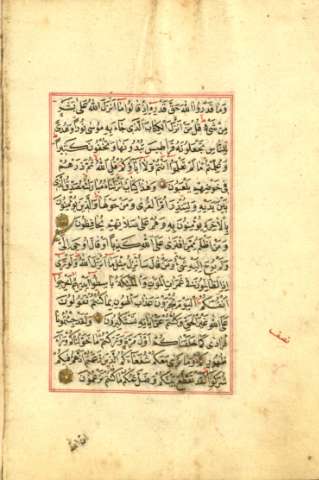 وَمَا قَدَرُوا اللّٰهَ حَقَّ قَدْرِهِ اِذْ قَالُوا مَا اَنْزَلَ اللّٰهُ عَلٰى بَشَرٍ
مِنْ شَىْءٍ قُلْ مَنْ اَنْزَلَ الْكِتَابَ الَّذِى جَاءَ بِهِ مُوسٰى نُورًا وَهُدًى
لِلنَّاسِ تَجْعَلُونَهُ قَرَاطِيسَ تُبْدُونَهَا وَتُخْفُونَ كَثِيرًا
وَعُلِّمْتُمْ مَا لَمْ تَعْلَمُوا اَنْتُمْ وَلَا اٰبَاؤُكُمْ قُلِ اللّٰهُ ثُمَّ ذَرْهُمْ
فِى خَوْضِهِمْ يَلْعَبُونَ وَهٰذَا كِتَابٌ اَنْزَلْنَاهُ مُبَارَكٌ مُصَدِّقُ الَّذِى
بَيْنَ يَدَيْهِ وَلِتُنْذِرَ اُمَّ الْقُرٰى وَمَنْ حَوْلَهَا وَالَّذِينَ يُؤْمِنُونَ
بِالْاٰخِرَةِ يُؤْمِنُونَ بِهِ وَهُمْ عَلٰى صَلَاتِهِمْ يُحَافِظُونَ
وَمَنْ اَظْلَمُ مِمَّنِ افْتَرٰى عَلَى اللّٰهِ كَذِبًا اَوْ قَالَ اُوحِىَ اِلَىَّ
وَلَمْ يُوحَ اِلَيْهِ شَىْءٌ وَمَنْ قَالَ سَاُنْزِلُ مِثْلَ مَا اَنْزَلَ اللّٰهُ وَلَوْ تَرٰى
اِذِ الظَّالِمُونَ فِى غَمَرَاتِ الْمَوْتِ وَالْمَلٰئِكَةُ بَاسِطُوا اَيْدِيهِمْ اَخْرِجُوا
اَنْفُسَكُمُ اَلْيَوْمَ تُجْزَوْنَ عَذَابَ الْهُونِ بِمَا كُنْتُمْ تَقُولُونَ
عَلَى اللّٰهِ غَيْرَ الْحَقِّ وَكُنْتُمْ عَنْ اٰيَاتِهِ تَسْتَكْبِرُونَ وَلَقَدْ جِئْتُمُونَا
فُرَادٰى كَمَا خَلَقْنَاكُمْ اَوَّلَ مَرَّةٍ وَتَرَكْتُمْ مَا خَوَّلْنَاكُمْ وَرَاءَ
ظُهُورِكُمْ وَمَا نَرٰى مَعَكُمْ شُفَعَاءَكُمُ الَّذِينَ زَعَمْتُمْ اَنَّهُمْ فِيكُمْ
شُرَكٰٓؤُا لَقَدْ تَقَطَّعَ بَيْنَكُمْ وَضَلَّ عَنْكُمْ مَا كُنْتُمْ تَزْعُمُونَ
نصف